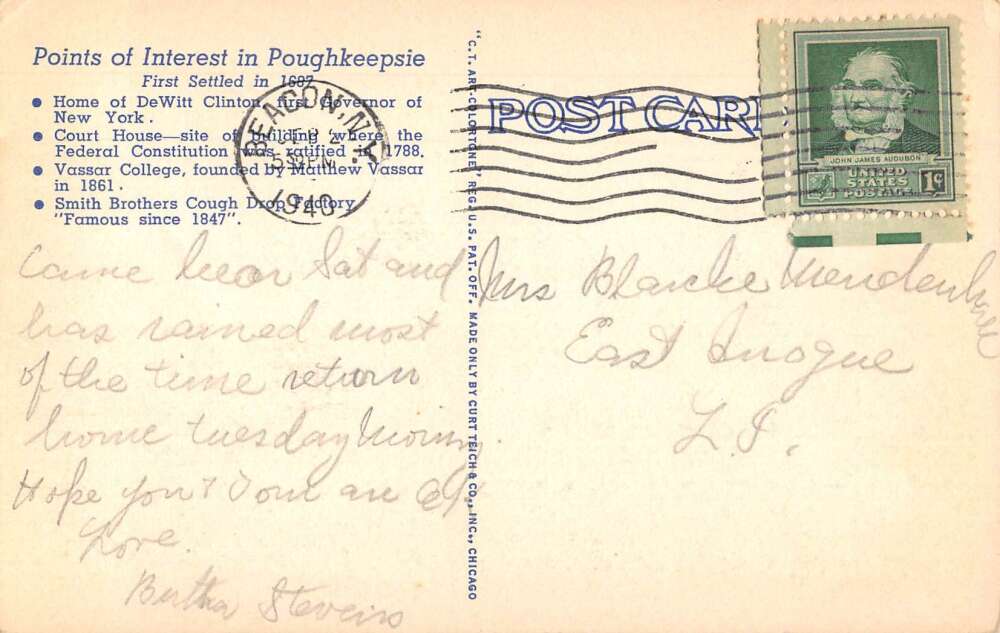 Points of Interest in Poughkeepsie
First Settled in 1687
• Home of DeWitt Clinton, first Governor of
New York.
• Court House—site of building where the
Federal Constitution was ratified in 1788.
• Vassar College, founded by Matthew Vassar
in 1861.
• Smith Brothers Cough Drop Factory
"Famous since 1847".
BEACON, N.Y.
2
5 PM
1940
came hear Sat and
has rained most
of the time return
home tuesday Morn
Hope you & Dom are OK
Love
Bertha Stevens
"C.T. ART-COLORTONE" REG. U.S. PAT. OFF. MADE ONLY BY CURT TEICH & CO., INC., CHICAGO
POST CARD
JOHN JAMES AUDUBON
UNITED
STATES
POSTAGE
1¢
Mrs Blanche Mendenhall
East Quogue
L.I.